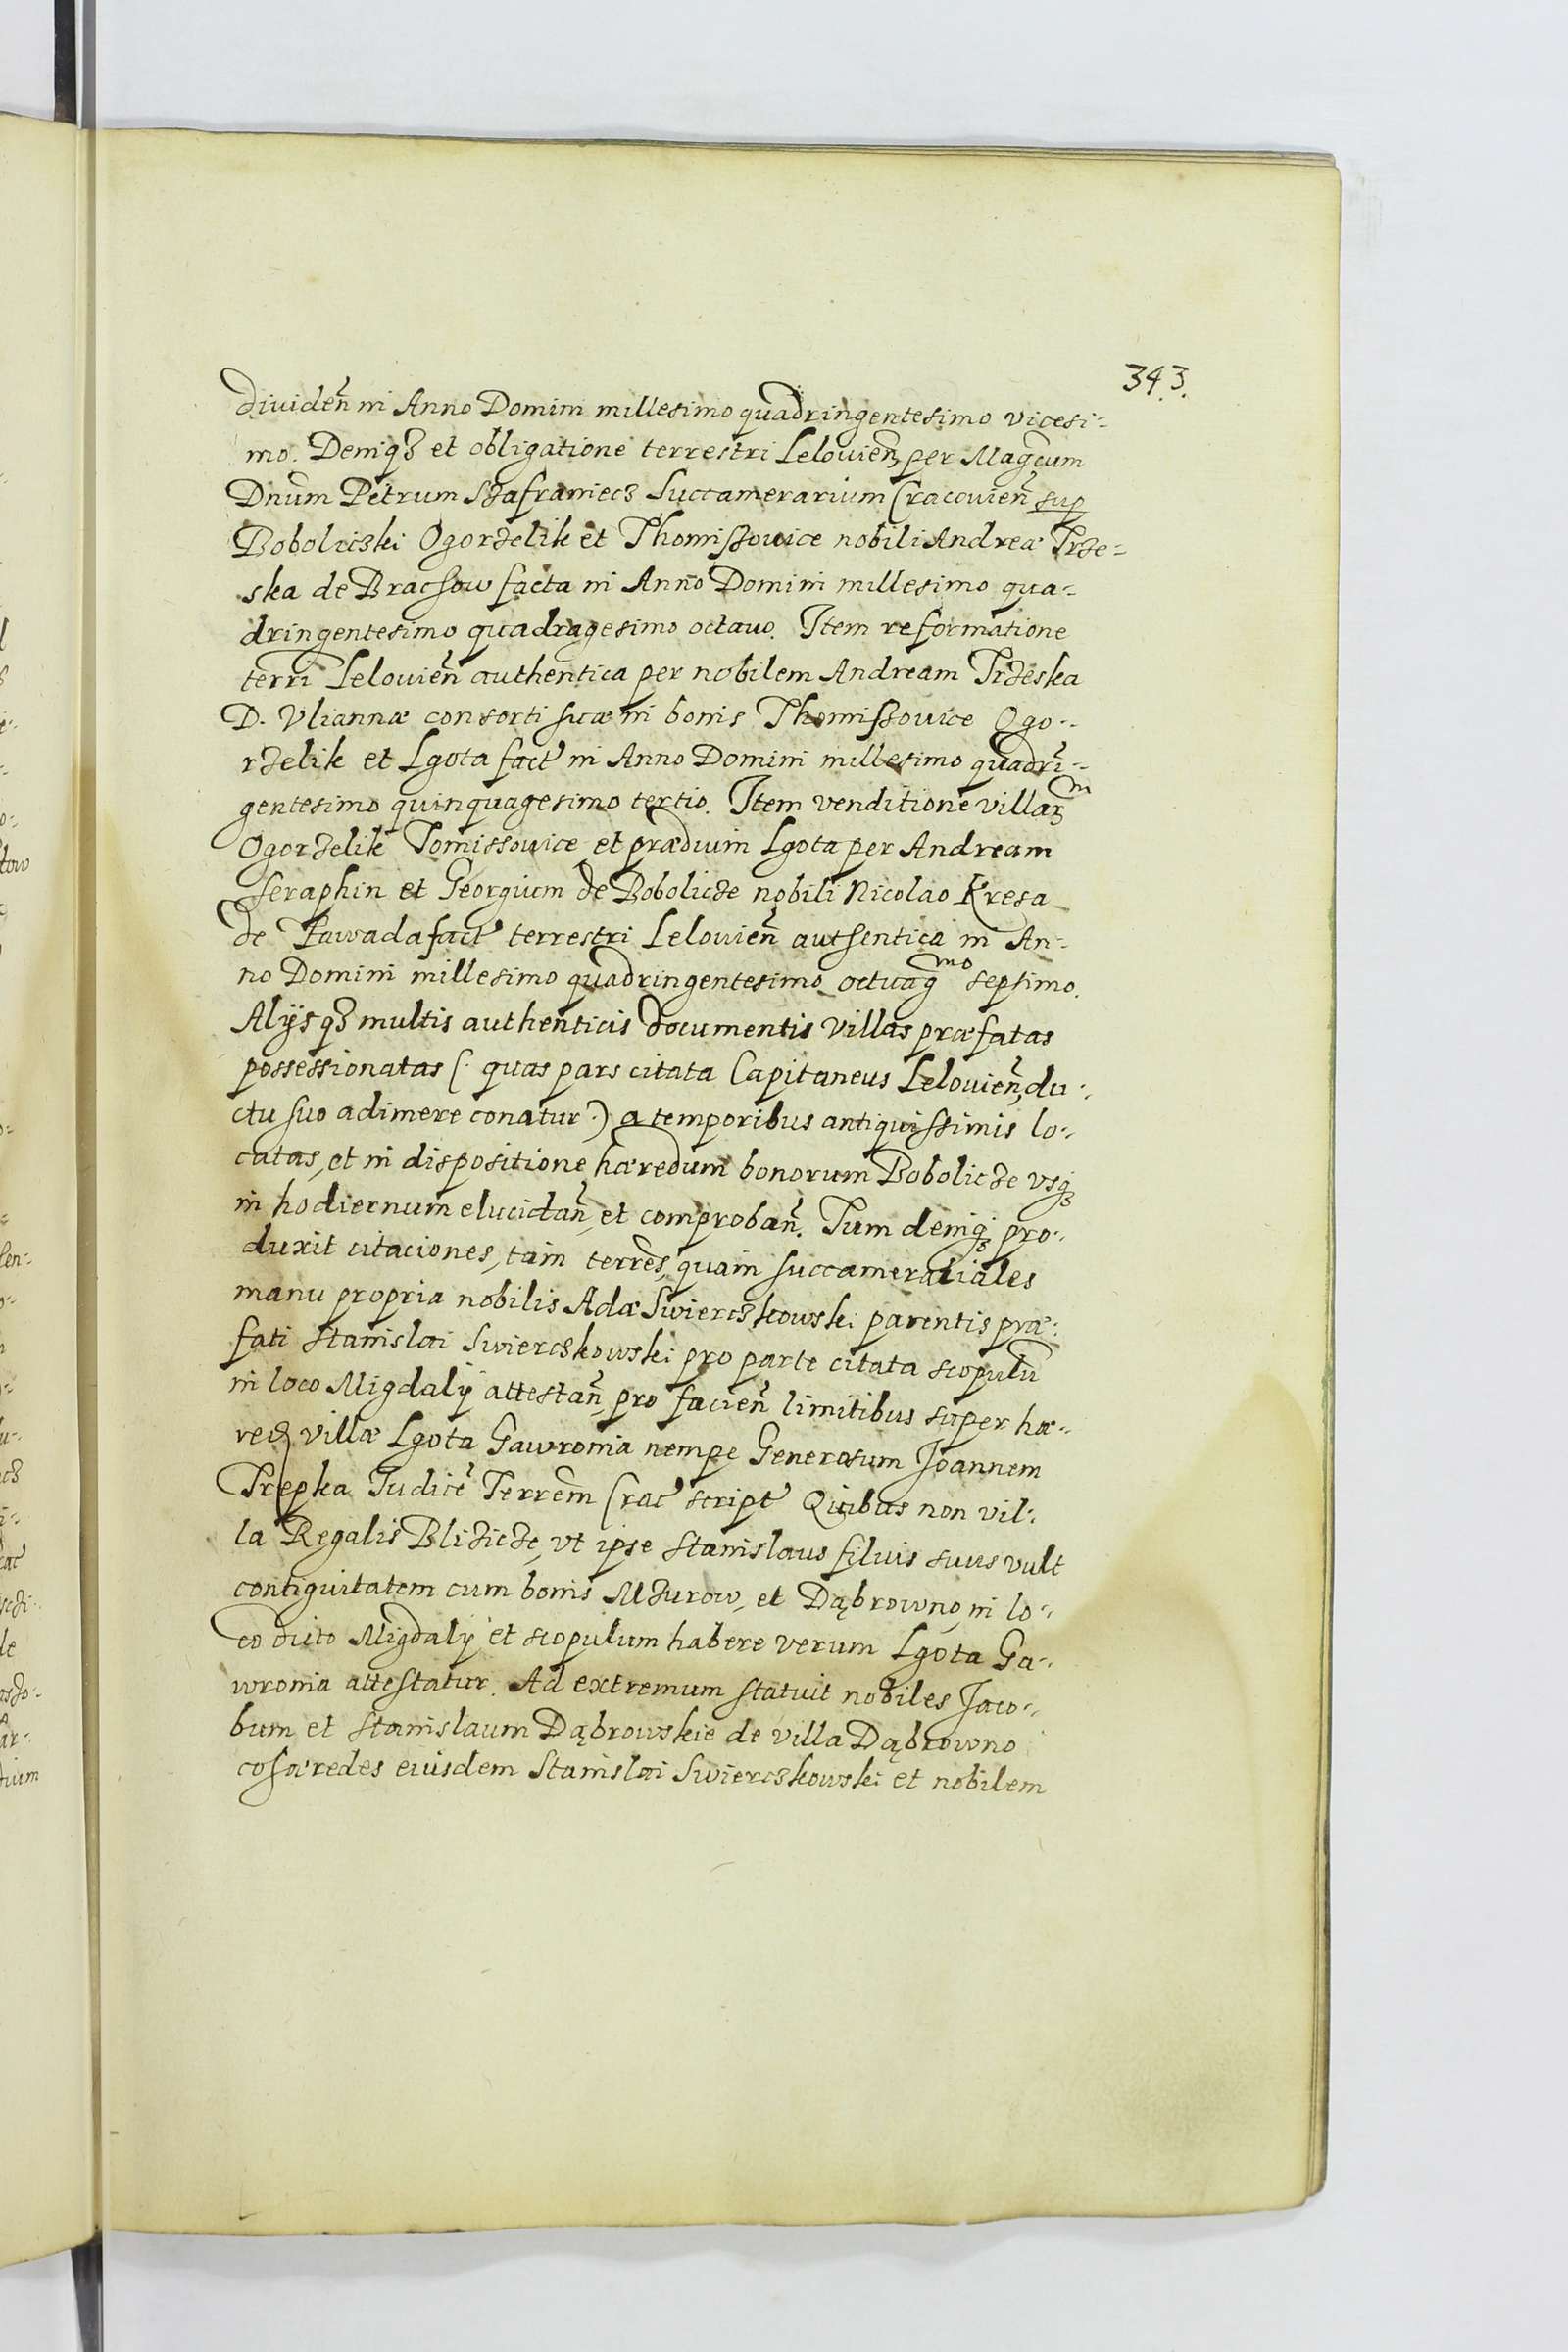 343.
dividen̄ in Anno Domini millesimo quadringentesimo vicesi-
mo. Deniqȝ et obligatione terrestri Lelouien̄ per Magcum
Dnum Petrum Szafraniecz Succamerarium Cracouien̄ sup
Boboliczki Ogorzelik et Thomiszouice nobili Andreæ Trze-
ska de Brachow facta in Anno Domini millesimo qua-
dringentesimo quadragesimo octauo. Item reformatione
terrı̄ Lelouien̄ authentica per nobilem Andream Trzeska
D. Vliannæ consorti suæ in bonis Thomiszouice Ogo-
rzelik et Lgota fact in Anno Domini millesimo quadri-
gentesimo quinquagesimo tertio. Item venditione villarm
Ogorzelik Tomissouice et prædium Lgota per Andream
Seraphin et Georgium de Bobolicze nobili Nicolao Kresa
de Zawada fact terrestri Lelouien̄ authentica in An-
no Domini millesimo quadringentesimo octuagmo septimo.
Alijsqȝ multis authenticis documentis villas præfatas
possessionatas (: quas pars citata Capitaneus Lelouien̄, du-
ctu suo adimere conatur :) a temporibus antiquissimis lo-
catas, et in dispositione hæredum bonorum Bobolicze vsqȝ
in hodiernum elucidan̄, et comproban̄. Tum deniqȝ pro-
duxit citaciones, tam terres, quam succamerariales
manu propria nobilis Adæ Swierczkowski parentis præ-
fati Stanislai Swierczkowski pro parte citata scopulū
in loco Migdaly attestan̄, pro facien̄ limitibus super hæ-
red villæ Lgota Gawronia nempe Generosum Joannem
Trepka Judicē Terrem Crac script Quibus non vil-
la Regalis Blizicze, vt ipse Stanislaus filius suus vult
contiguitatem cum bonis Mzurow, et Dąbrowno, in lo-
co dicto Migdaly et scopulum habere verum Lgota Ga-
wronia attestatur. Ad extremum statuit nobiles Jaco-
bum et Stanislaum Dąbrowskie de villa Dąbrowno
cohæredes eiusdem Stanislai Swierczkowski et nobilem